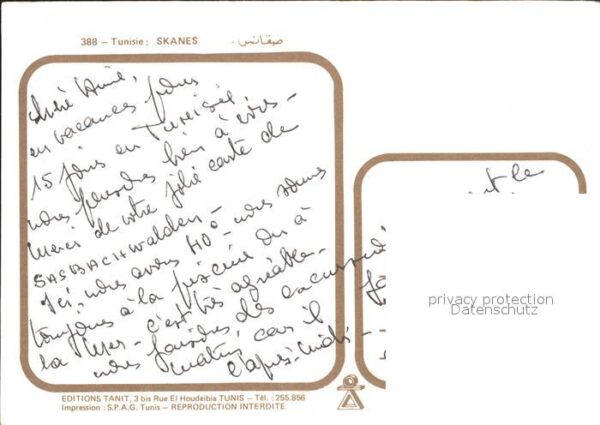 388 – Tunisie : SKANES صقانس
Chère Amie,
en vacances pour
15 jours en Tunisie,
nous pensons bien à vous –
Merci de votre jolie carte de
SASBACHWALDEN –
Ici, nous avons 40° – nous sommes
toujours à la piscine ou à
la mer – c'est très agréable –
nous faisons des excursions
matin, car il
l'après-midi –
privacy protection
Datenschutz
EDITIONS TANIT, 3 bis Rue El Houdeibia TUNIS – Tél. : 255.856
Impression : S.P.A.G. Tunis – REPRODUCTION INTERDITE